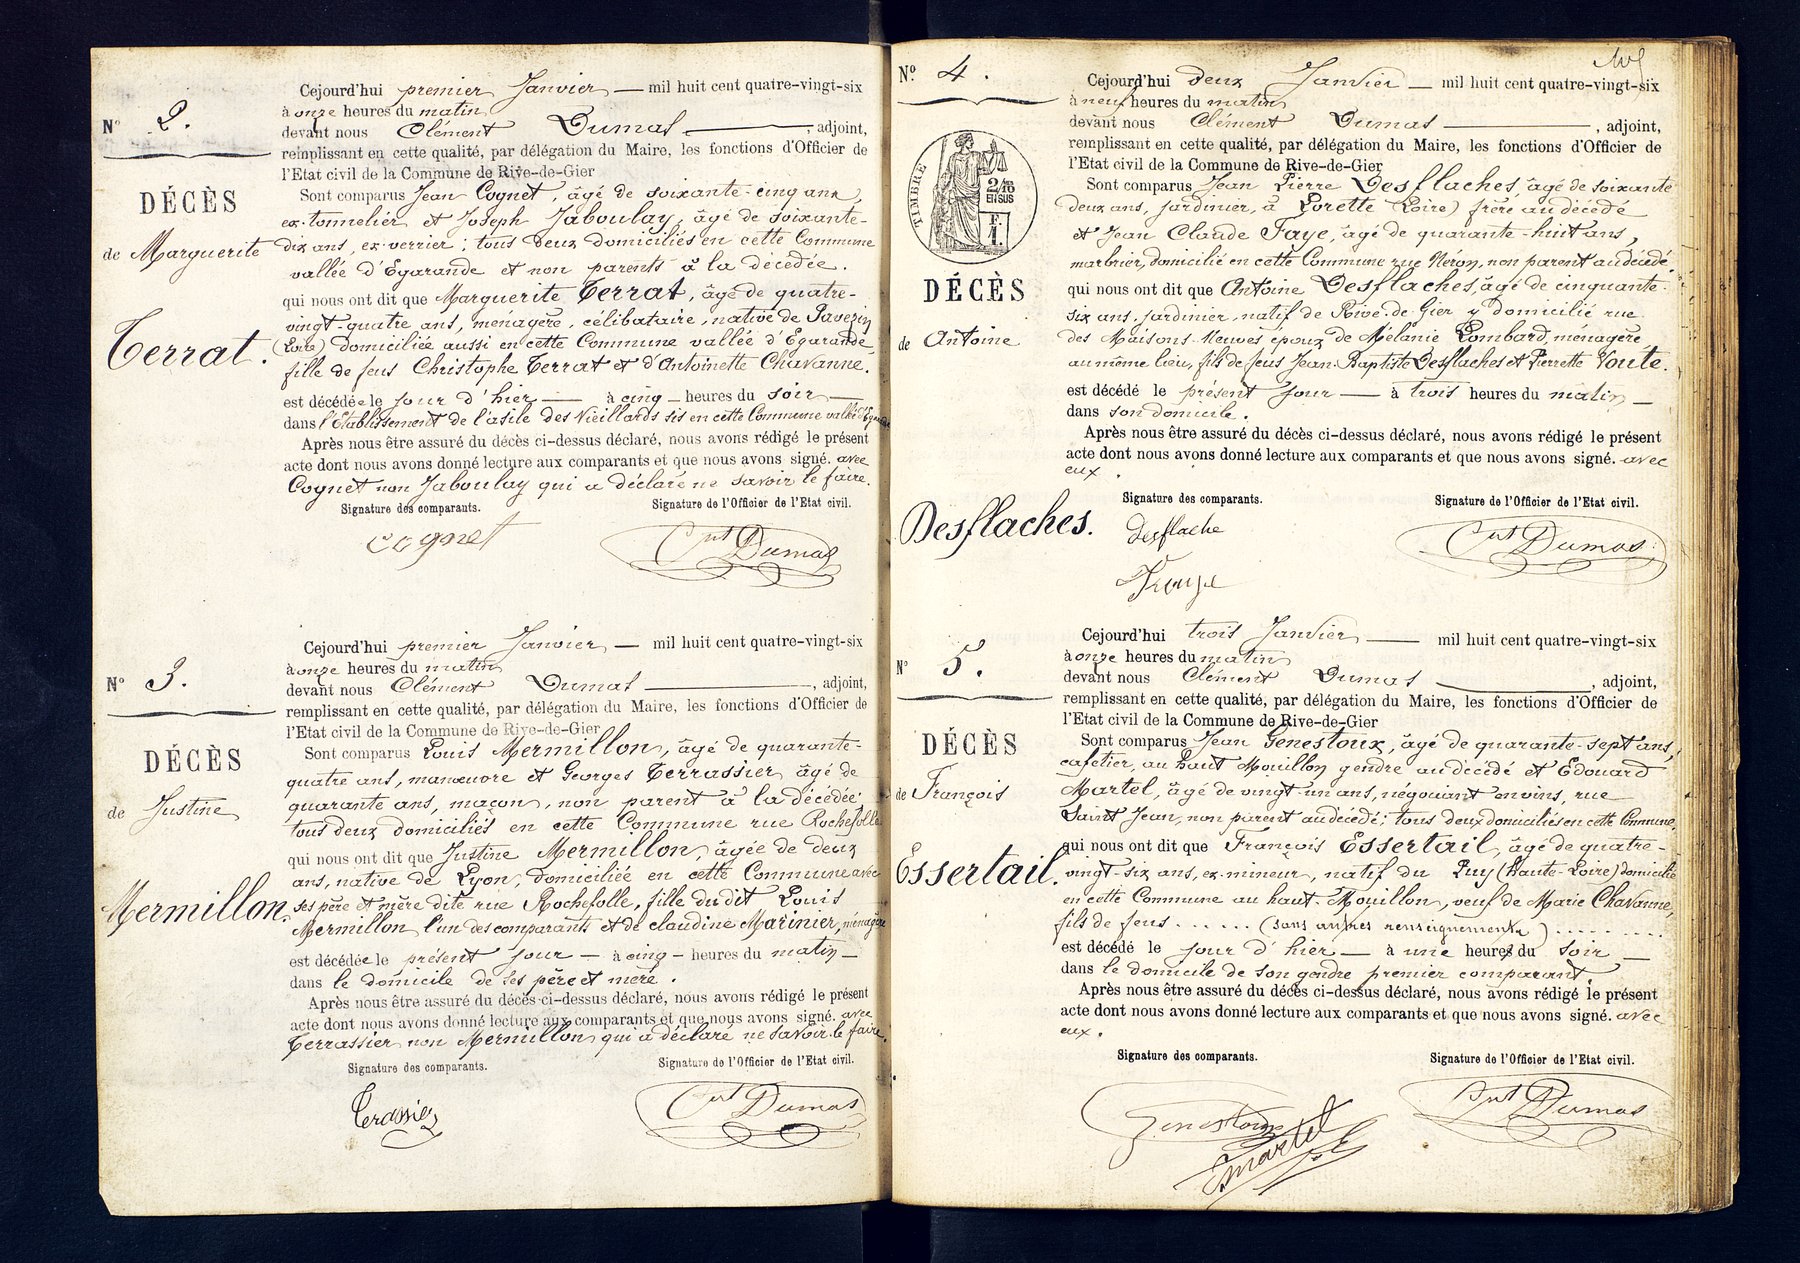 Cejourd'hui premier Janvier — mil huit cent quatre-vingt-six
à onze heures du matin
N° 2.
devant nous Clément Dumas ——, adjoint,
remplissant en cette qualité, par délégation du Maire, les fonctions d'Officier de
l'Etat civil de la Commune de Rive-de-Gier
DÉCÈS
Sont comparus Jean Cognet, âgé de soixante-cinq ans,
ex-tonnelier et Joseph Jaboulay, âgé de soixante-
dix ans, ex-verrier; tous deux domiciliés en cette Commune
de Marguerite
vallée d'Egarande et non parents à la décédée.
qui nous ont dit que Marguerite Terrat, âgé de quatre-
vingt-quatre ans, ménagère, célibataire, native de Pavezin
Terrat.
(Loire) domiciliée aussi en cette Commune vallée d'Egarande
fille de feus Christophe Terrat et d'Antoinette Chavanne.
est décédée le jour d'hier — à cinq — heures du soir —
dans l'Etablissement de l'asile des Vieillards sis en cette Commune vallée d'Egarande
Après nous être assuré du décès ci-dessus déclaré, nous avons rédigé le présent
acte dont nous avons donné lecture aux comparants et que nous avons signé. avec
Cognet non Jaboulay qui a déclaré ne savoir le faire.
Signature des comparants. Signature de l'Officier de l'Etat civil.
Cognet Cnt Dumas
Cejourd'hui premier Janvier — mil huit cent quatre-vingt-six
à onze heures du matin
N° 3.
devant nous Clément Dumas ——, adjoint,
remplissant en cette qualité, par délégation du Maire, les fonctions d'Officier de
l'Etat civil de la Commune de Rive-de-Gier
DÉCÈS
Sont comparus Louis Mermillon, âgé de quarante-
quatre ans, manœuvre et Georges Terrassier âgé de
de Justine
quarante ans, maçon, non parent à la décédée;
tous deux domiciliés en cette Commune rue Rochefolle
qui nous ont dit que Justine Mermillon, âgée de deux
ans, native de Lyon, domiciliée en cette Commune avec
Mermillon.
ses père et mère dite rue Rochefolle, fille du dit Louis
Mermillon l'un des comparants et de claudine Marinier, ménagère
est décédée le présent jour — à cinq — heures du matin —
dans le domicile de ses père et mère.
Après nous être assuré du décès ci-dessus déclaré, nous avons rédigé le présent
acte dont nous avons donné lecture aux comparants et que nous avons signé. avec
Terrassier non Mermillon qui a déclaré ne savoir le faire.
Signature des comparants. Signature de l'Officier de l'Etat civil.
Terassier Cnt Dumas
N° 4.
Cejourd'hui deux Janvier — mil huit cent quatre-vingt-six
à neuf heures du matin
devant nous Clément Dumas ——, adjoint,
remplissant en cette qualité, par délégation du Maire, les fonctions d'Officier de
l'Etat civil de la Commune de Rive-de-Gier
TIMBRE
2/10
EN SUS
F.
1.
Sont comparus Jean Pierre Desflaches, âgé de soixante
deux ans, jardinier, à Lorette (Loire) frère au décédé
et Jean Claude Faye, âgé de quarante-huit ans,
marbrier, domicilié en cette Commune rue Néron, non parent au décédé
DÉCÈS
qui nous ont dit que Antoine Desflaches, âgé de cinquante-
six ans, jardinier, natif de Rive-de-Gier y domicilié rue
de Antoine
des Maisons-Neuves époux de Mélanie Lombard, ménagère
au même lieu, fils de feus Jean-Baptiste Desflaches et Pierrette Voute.
est décédé le présent jour — à trois heures du matin —
dans son domicile.
Après nous être assuré du décès ci-dessus déclaré, nous avons rédigé le présent
acte dont nous avons donné lecture aux comparants et que nous avons signé. avec
eux.
Signature des comparants. Signature de l'Officier de l'Etat civil.
Desflaches.
Desflache Cnt Dumas
Cejourd'hui trois Janvier — mil huit cent quatre-vingt-six
à onze heures du matin
N° 5.
devant nous Clément Dumas ——, adjoint,
remplissant en cette qualité, par délégation du Maire, les fonctions d'Officier de
l'Etat civil de la Commune de Rive-de-Gier
DÉCÈS
Sont comparus Jean Genestoux, âgé de quarante-sept ans,
cafetier, au haut Mouillon gendre au décédé et Edouard
de François
Martel, âgé de vingt un ans, négociant en vins, rue
Saint Jean, non parent au décédé; tous deux domiciliés en cette Commune,
qui nous ont dit que François Essertail, âgé de quatre-
Essertail.
vingt-six ans, ex-mineur, natif du Puy (Haute-Loire) domicilié
en cette Commune au haut-Mouillon, veuf de Marie Chavanne,
fils de feus ...... (sans autres renseignements) .........
est décédé le jour d'hier — à une heures du soir —
dans le domicile de son gendre premier comparant.
Après nous être assuré du décès ci-dessus déclaré, nous avons rédigé le présent
acte dont nous avons donné lecture aux comparants et que nous avons signé. avec
eux.
Signature des comparants. Signature de l'Officier de l'Etat civil.
Genestoux Cnt Dumas
Martel